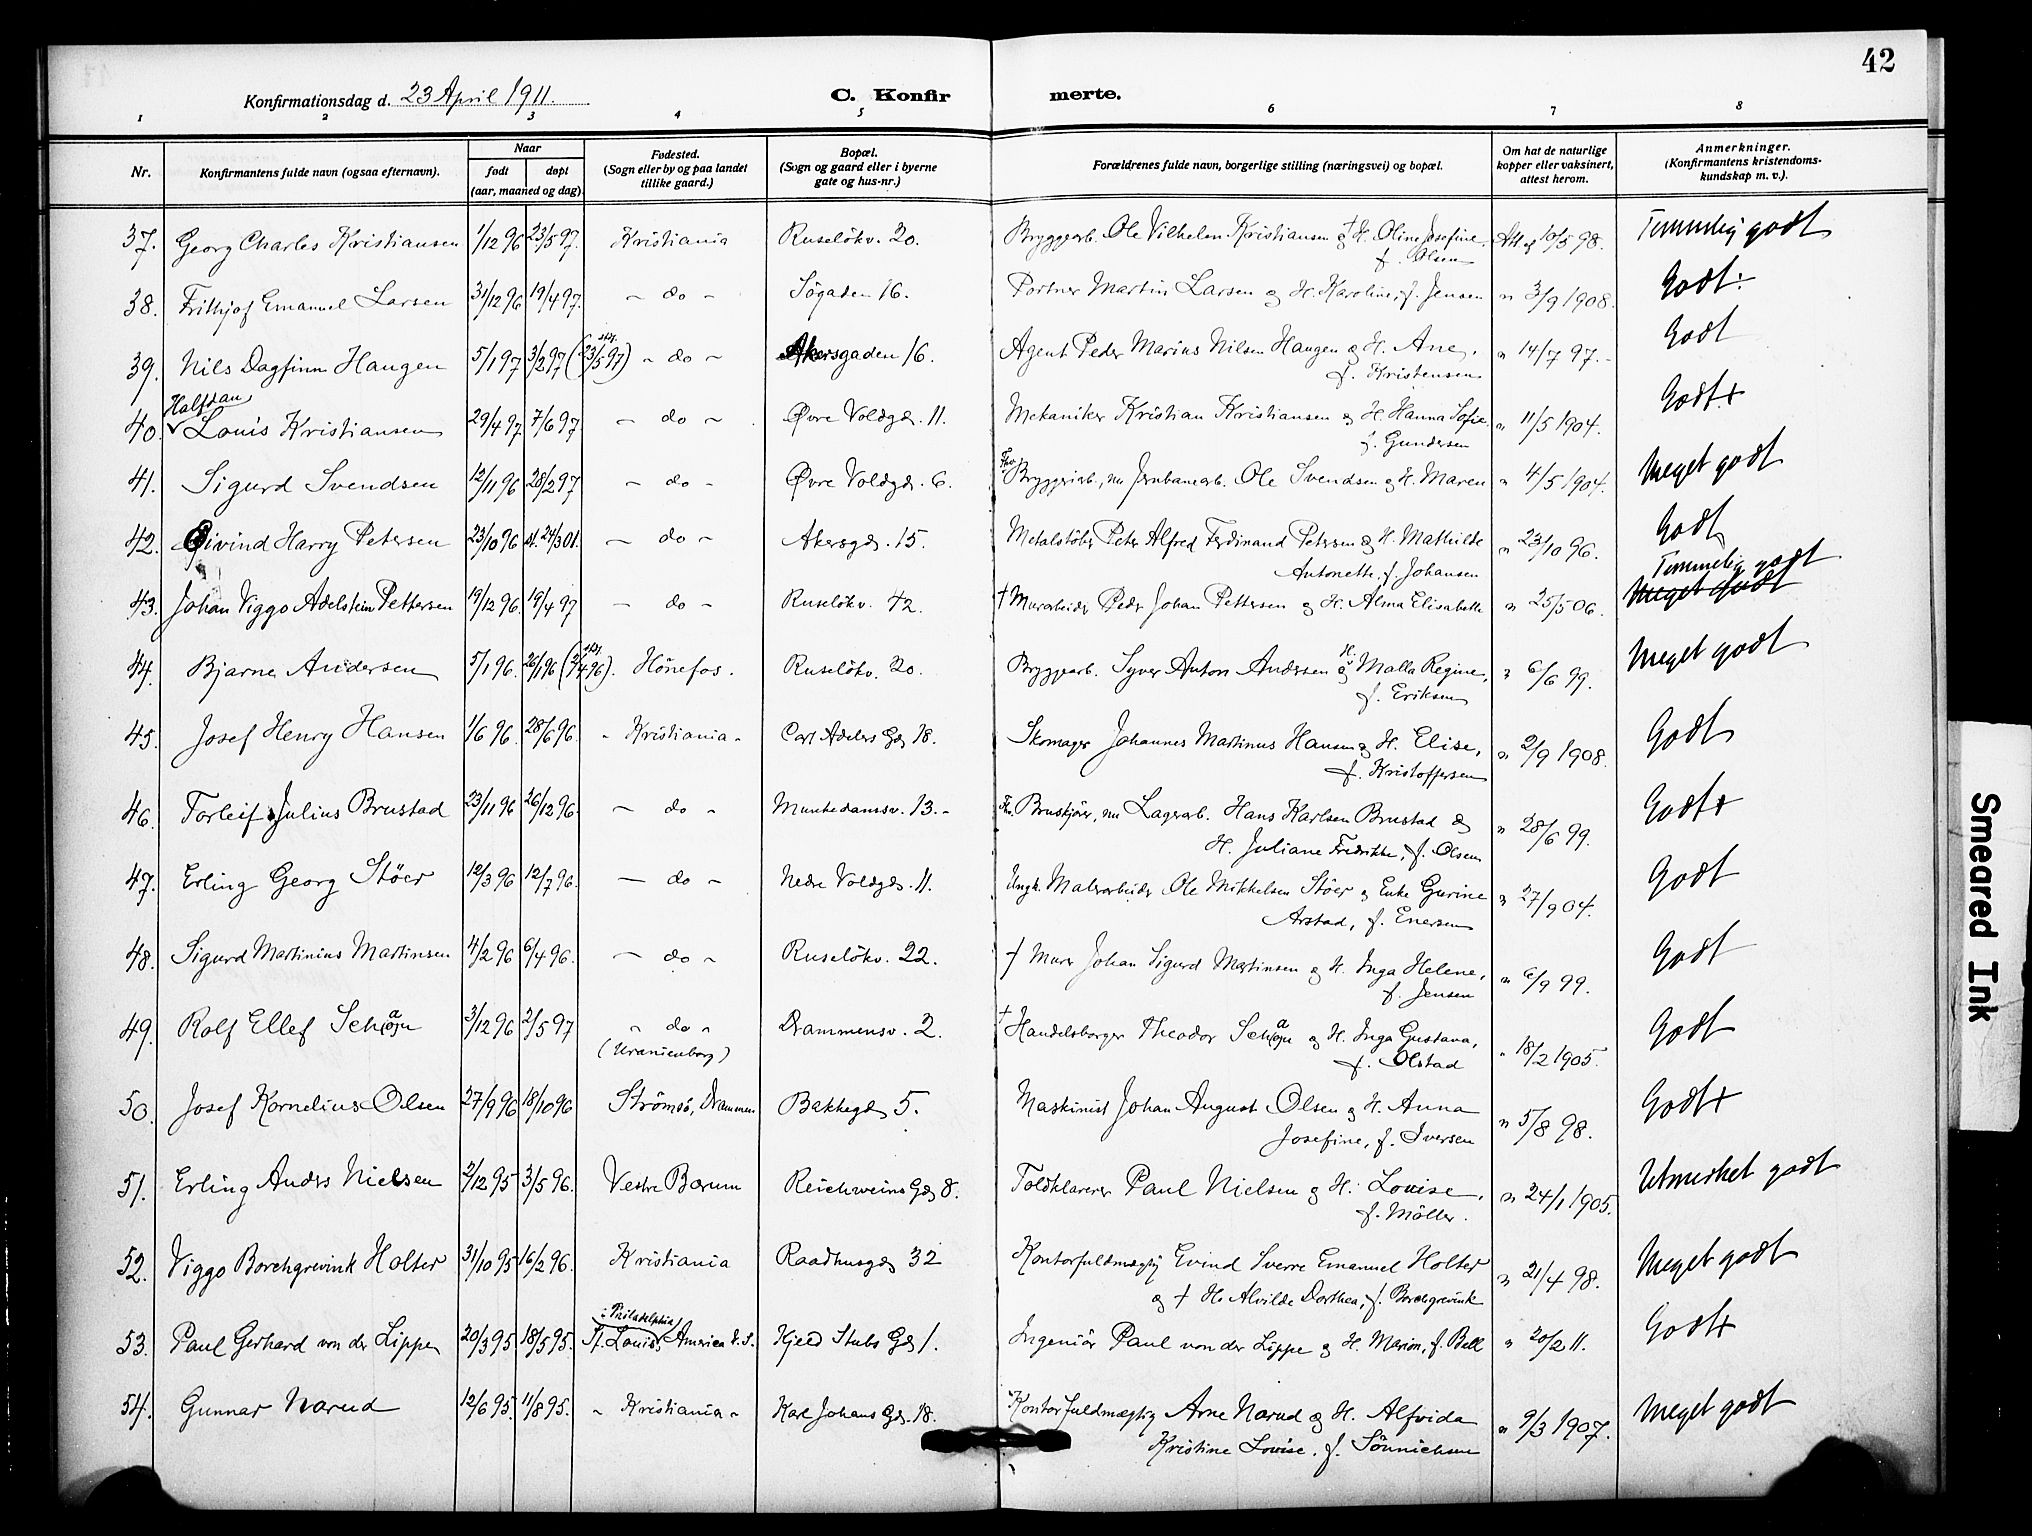 42
Konfirmationsdag d. 23 April 1911.
C. Konfirmerte.
1 2 3 4 5 6 7 8
Nr.
Konfirmantens fulde navn (ogsaa efternavn).
Naar
født
døpt
(aar, maaned og dag).
Fødested.
(Sogn eller by og paa landet
tillike gaard.)
Bopæl.
(Sogn og gaard eller i byerne
gate og hus-nr.)
Forældrenes fulde navn, borgerlige stilling (næringsvei) og bopæl.
Om hat de naturlige
kopper eller vaksinert,
attest herom.
Anmerkninger.
(Konfirmantens kristendoms-
kundskap m. v.).
37. Georg Charles Kristiansen 1/12 96 23/5 97. Kristiania Ruselökv. 20. Bryggearb. Ole Vilhelm Kristiansen og † H. Oline Josefine, Att af 10/5 98. Temmelig godt
f. Olsen
38. Frithjof Emanuel Larsen 31/12 96 19/4 97. - do - Søgaden 16. Portner Martin Larsen og H. Karoline, f. Jensen " 3/9 1908. Godt÷
39. Nils Dagfinn Haugen 5/1 97 3/2 97 (23/5 97) - do - Akersgaden 16. Agent Peder Marius Nilsen Haugen og H. Ane, " 14/7 97. - Godt
f. Kristensen
Halfdan
40. Louis Kristiansen 29/4 97. 7/6 97 - do - Øvre Voldgd. 11. Mekaniker Kristian Kristiansen og H. Hanna Sofie " 11/5 1904. Godt+
f. Gundersen
41. Sigurd Svendsen 12/11 96 28/2 97 - do - Øvre Voldgd. 6. Fhv. Bryggeriarb., nu Jernbanearb. Ole Svendsen og H. Maren " 4/5 1904. Meget godt
42. Øivind Harry Petersen 23/10 96 24/3 01. - do - Akersgd. 15. Metalstöber Peter Alfred Ferdinand Petersen og H. Mathilde " 23/10 96. Godt
Antonette, f. Johansen
Temmelig godt
43. Johan Viggo Adelstein Pettersen 19/12 96. 19/4 97 - do - Ruselökv. 42. † Murarbeider Peder Johan Pettersen og H. Alma Elisabeth " 25/5 06. Meget godt
44. Bjarne Andersen 5/1 96. 26/1 96 (7/4 96). Hönefos. Ruselökv. 20. Bryggearb. Syver Anton Andersen og H. Malla Regine, " 6/6 99. Meget godt
f. Eriksen
45. Josef Henry Hansen 1/6 96. 28/6 96. - Kristiania - Carl Adelers Gd. 18. Skomager Johannes Martinus Hansen og H. Elise, " 2/9 1908. Godt
f. Kristoffersen
46. Torleif Julius Brustad 23/11 96 26/12 96. - do - Munkedamsv. 13. - Fhv. Bruskjörer, nu Lagerarb. Hans Karlsen Brustad og " 28/6 99. Godt+
H. Juliane Fredrikke, f. Olsen
47. Erling Georg Stöer 12/3 96 12/7 96. - do - Nedre Voldgd. 11. Ungk. Malerarbeider Ole Mikkelsen Stöer og Enke Gurine " 27/9 04. Godt
Arstad, f. Enersen
48. Sigurd Martinius Martinsen 4/2 96 6/4 96. - do - Ruselökv. 22. † Murer Johan Sigurd Martinsen og H. Inga Helene, " 6/9 99. Godt
f. Jensen
49. Rolf Ellef Schøn 3/12 96 2/5 97 " do " Drammensv. 2. † Handelsborger Theodor Schøn og H. Inga Gustava, " 18/2 1905. Godt
(Uranienborg) f. Olstad
50. Josef Kornelius Olsen 27/9 96 18/10 96 Strömsö, Drammen Bakkegd 5. Maskinist Johan August Olsen og H. Anna " 5/8 98. Godt+
Josefine, f. Iversen
51. Erling Anders Nielsen 2/12 95 3/5 96. Vestre Bærum Reichweins Gd 8. Toldklarerer Paul Nielsen og H. Louise, " 24/1 1905. Utmerket godt
f. Möller.
52. Viggo Borchgrevink Holter 31/10 95 16/2 96. Kristiania Raadhusgd 32 Kontorfuldmægtig Eivind Sverre Emanuel Holter " 21/4 98. Meget godt
og † H. Alvilde Dorthea, f. Borchgrevink
: Philadelphia
53. Paul Gerhard von der Lippe 20/3 95 18/5 95. St. Louis, America U.S. Kjeld Stubs Gd 1. Ingeniör Paul von der Lippe og H. Marion, f. Bell " 20/2 11. Godt+
54. Gunnar Narud 12/6 95. 11/8 95. - Kristiania - Karl Johans Gd. 18. Kontorfuldmægtig Arne Narud og H. Alfrida " 9/3 1907. Meget godt
Kristine Lovise, f. Sönnichsen
Smeared Ink